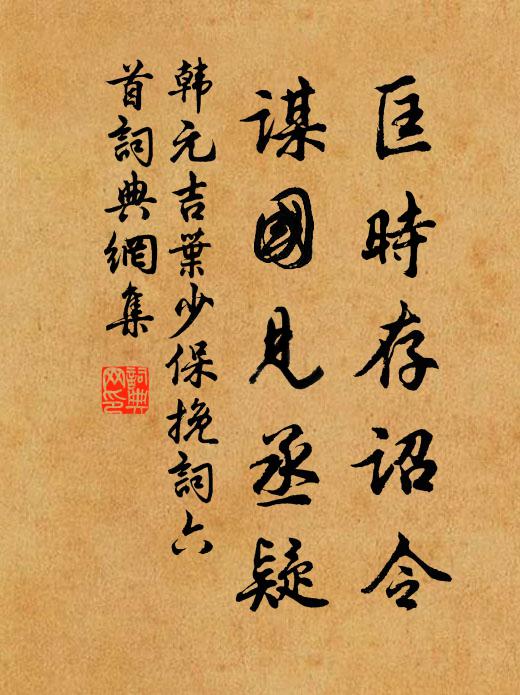 匡時存詔令
謀國見丞疑
韩元吉葉少保挽詞六
首詞典網集
詞典
网印